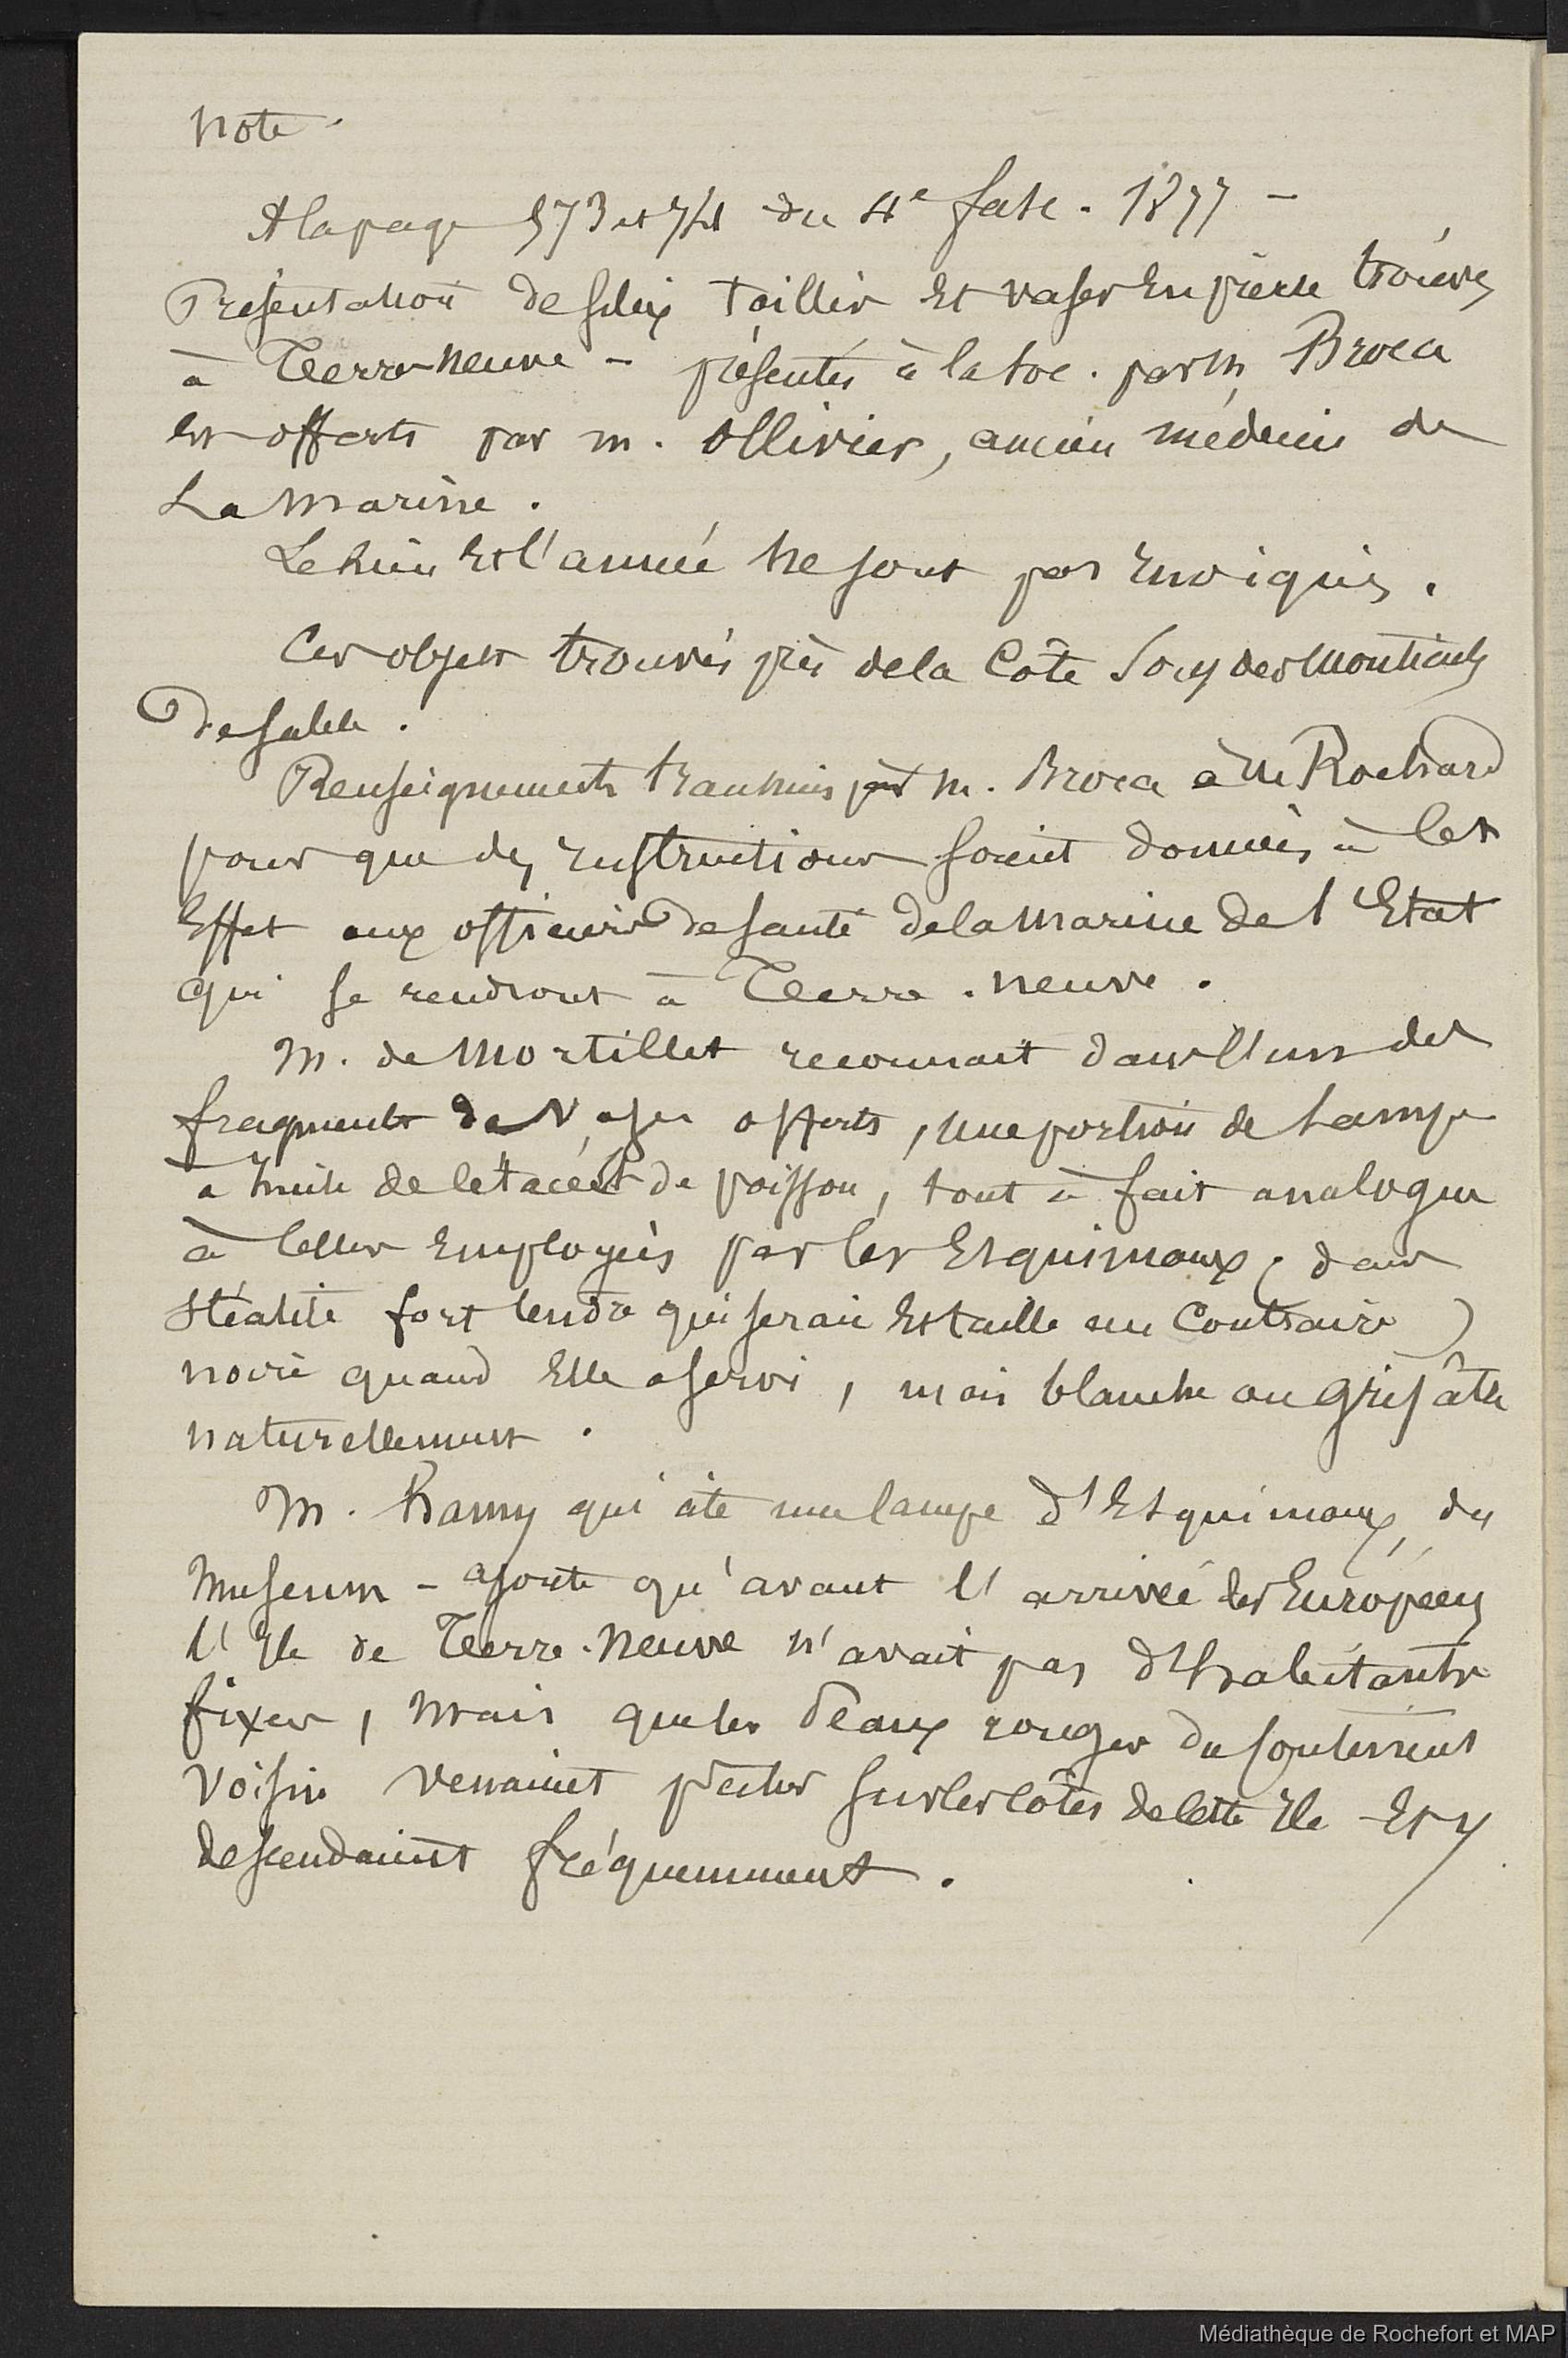 Note.
A la page 573 et 74 du 4e fasc. 1877 -
Présentation de silex taillés et vases en pierre trouvés
à Terre-neuve - présentés à la soc. par M Broca
et offerts par m. Ollivier, ancien médecin de
La Marine.
Le lieu et l'année ne sont pas indiqués.
Ces objets trouvés près de la Côte sous des Monticules
de sable.
Renseignements transmis par M. Broca à M Rochard
pour que des instructions soient données à cet
Effet aux officiers de santé de la Marine de l'Etat
qui se rendront à Terre-neuve.
M. de Mortillet reconnait dans l'un des
fragments de Vases offerts, une portion de Lampe
à huile de cétacé et de poisson, tout à fait analogue
à celles Employées par les Esquimaux (dans
stéatite fort tendre qui se raie et taille au Contraire)
noire quand Elle a servi, mais blanche ou grisâtre
naturellement.
M. Hamy qui cite une lampe d'Esquimaux, du
Museum - ajoute qu'avant l'arrivée des Européens
l'Ile de Terre-Neuve n'avait pas d'habitants
fixes, Mais que les Peaux rouges du continent
Voisin venaient pêcher sur les côtes de cette Ile Et y
descendaient fréquemment.
Médiathèque de Rochefort et MAP